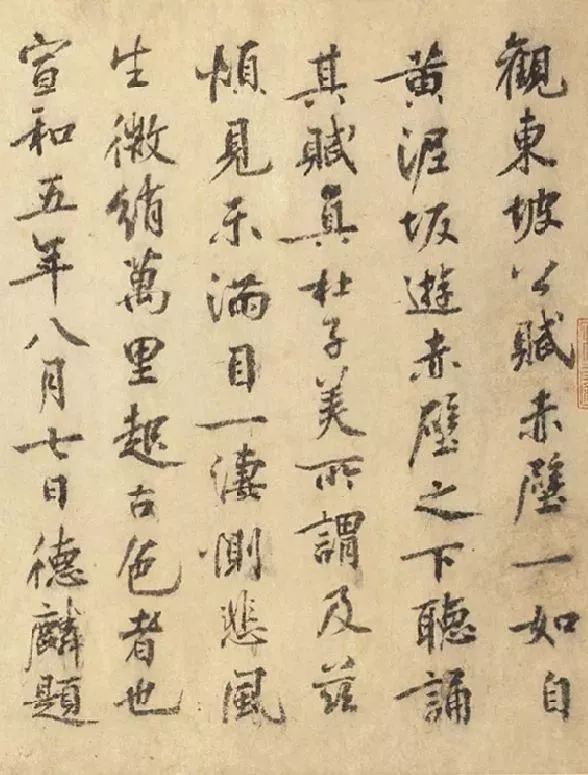 觀東坡公賦赤壁一如自
黃泥坂遊赤壁之下聽誦
其賦真杜子美所謂及茲
煩見示滿目一淒惻悲風
生微綃萬里起古色者也
宣和五年八月七日德麟題